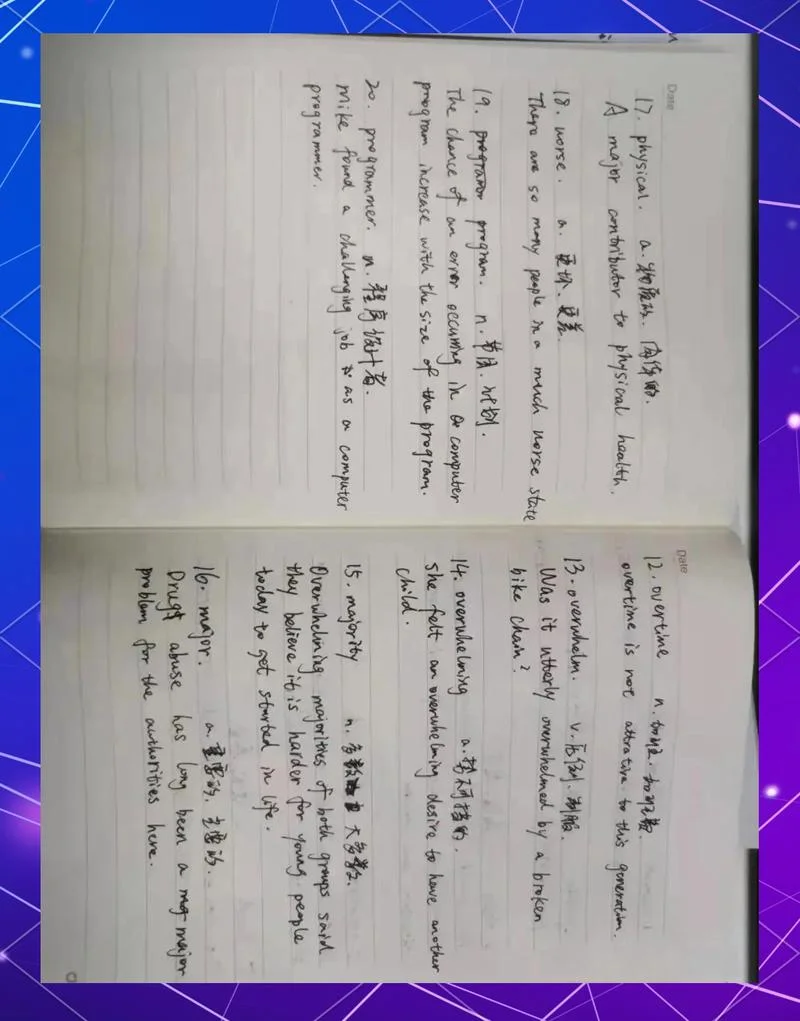 Date
12. overtime n. 加班. 加班费.
overtime is not attrative to this generation.
13. overwhelm. v. 压倒. 制服.
Was it utterly overwhelmed by a broken
bike chain?
14. overwhelming a. 势不可挡的.
She felt an overwhelming desire to have another
child.
15. majority n. 多数 大多数.
Overwhelming majorities of both groups said
they believe it is harder for young people
today to get started in life.
16. major. a. 重要的. 主要的.
Drugs abuse has long been a major
problem for the authorities here.
Date
17. physical. a. 物质的. 身体的.
A major contributor to physical health.
18. worse. a. 更坏. 更差.
There are so many people in a much worse state
19. program. n. 节目. 计划.
The chance of an error occuring in a computer
program increase with the size of the program.
20. programmer. n. 程序设计者.
Mike found a challenging job as a computer
programmer.